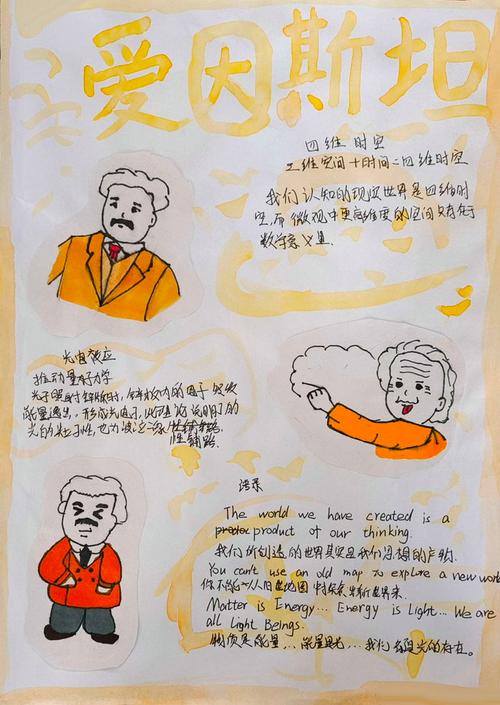 爱因斯坦
四维时空
三维空间+时间=四维时空
我们认知的现实世界是四维时
空,而微观中更高维度的空间只存在于
数学意义里.
光电效应
推动量子力学
光子照射 时, 内的电子吸收
能量逸出,形成光电子,此理论说明了的
光的粒子性,也为波
性铺路.
语录
The world we have created is a
product of our thinking.
我们所创造的世界其实是我们思想的产物.
You can't use an old map to explore a new world
你不能以旧地图 探索 新世界来.
Matter is Energy... Energy is Light... We are
all Light Beings.
物质是能量... 能量是光... 我们都是光的存在。